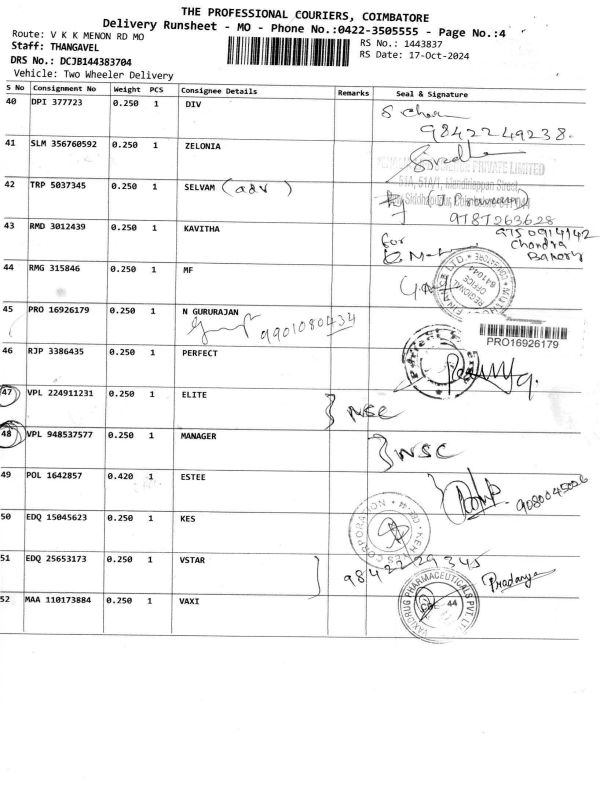 THE PROFESSIONAL COURIERS, COIMBATORE
Delivery Runsheet - MO - Phone No.:0422-3505555 - Page No.:4
Route: V K K MENON RD MO
Staff: THANGAVEL
RS No.: 1443837
DRS No.: DCJB144383704
RS Date: 17-Oct-2024
Vehicle: Two Wheeler Delivery
S No Consignment No Weight PCS Consignee Details Remarks Seal & Signature
40 DPI 377723 0.250 1 DIV
9842249238.
41 SLM 356760592 0.250 1 ZELONIA
PRIVATE LIMITED
51A, 51A/1, Street,
42 TRP 5037345 0.250 1 SELVAM
9787263628
43 RMD 3012439 0.250 1 KAVITHA
9750914142
for
Chandra
Bakery
44 RMG 315846 0.250 1 MF
REGIONAL OFFICE
641044
45 PRO 16926179 0.250 1 N GURURAJAN
9901080434
PRO16926179
46 RJP 3386435 0.250 1 PERFECT
47 VPL 224911231 0.250 1 ELITE
NSC
48 VPL 948537577 0.250 1 MANAGER
NSC
49 POL 1642857 0.420 1 ESTEE
9080045026
50 EDQ 15045623 0.250 1 KES
CORPORATION
51 EDQ 25653173 0.250 1 VSTAR
9842229345
52 MAA 110173884 0.250 1 VAXI
VAXIDRUG PHARMACEUTICALS PVT. LTD
44